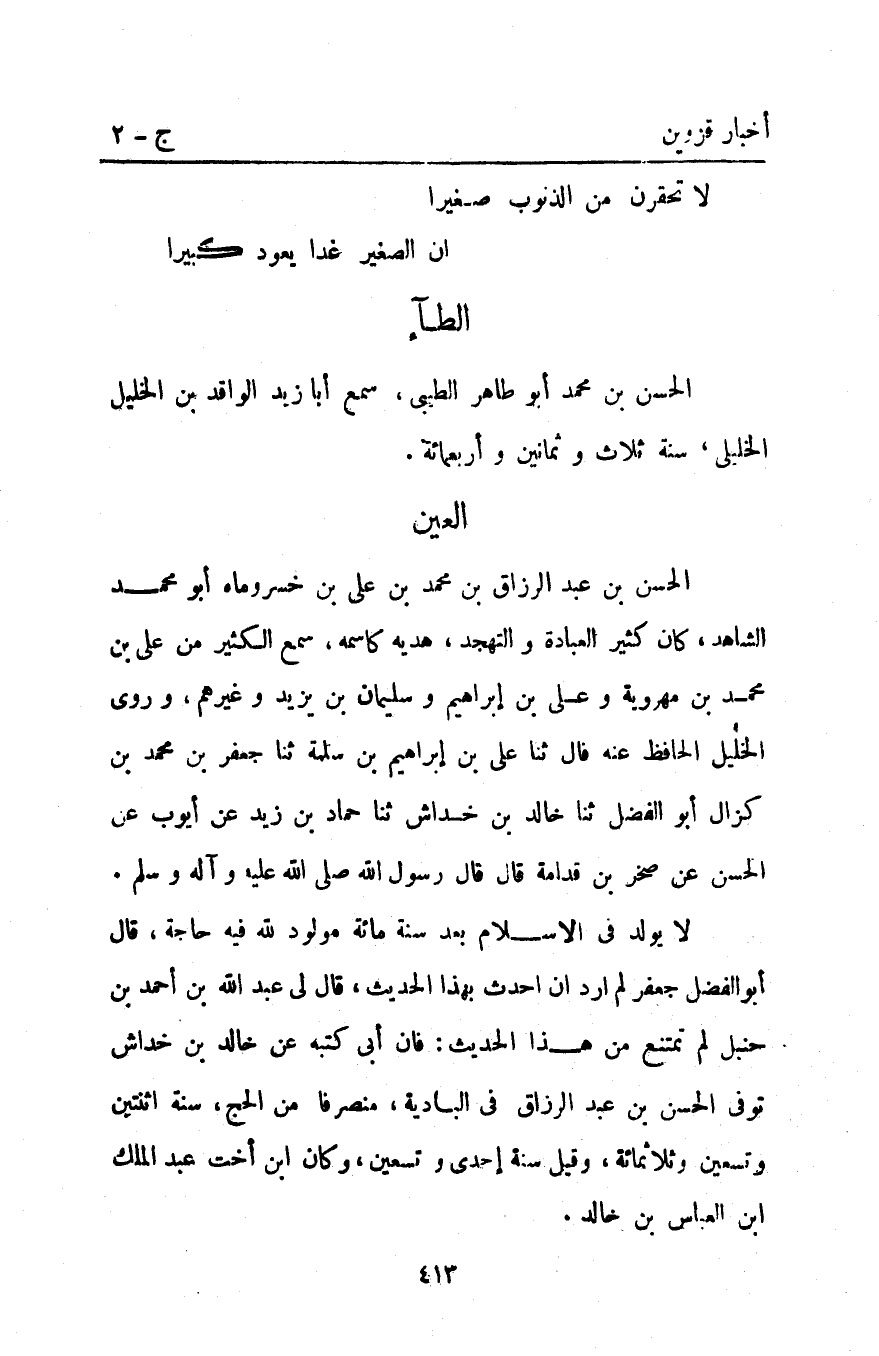 أخبار قزوين ج - ٢
لا تحقرن من الذنوب صغيرا
ان الصغير غدا يعود كبيرا
الطآء
الحسن بن محمد أبو طاهر الطيبى، سمع أبا زيد الواقد بن الخليل
الخليلى، سنة ثلاث و ثمانين و أربعمائة .
العين
الحسن بن عبد الرزاق بن محمد بن على بن خسروماه أبو محمد
الشاهد، كان كثير العبادة و التهجد، هديه كاسمه، سمع الكثير من على بن
محمد بن مهروية و على بن إبراهيم و سليمان بن يزيد و غيرهم، و روى
الخليل الحافظ عنه قال ثنا على بن إبراهيم بن سلمة ثنا جعفر بن محمد بن
كزال أبو الفضل ثنا خالد بن خداش ثنا حماد بن زيد عن أيوب عن
الحسن عن صخر بن قدامة قال قال رسول الله صلى الله عليه و آله و سلم .
لا يولد فى الاسلام بعد سنة مائة مولود لله فيه حاجة، قال
أبوالفضل جعفر لم ارد ان احدث بهذا الحديث، قال لى عبد الله بن أحمد بن
حنبل لم تمتنع من هذا الحديث: فان أبى كتبه عن خالد بن خداش
توفى الحسن بن عبد الرزاق فى البادية، منصرفا من الحج، سنة اثنتين
و تسعين و ثلاثمائة، و قيل سنة إحدى و تسعين، و كان ابن أخت عبد الملك
ابن العباس بن خالد .
٤١٣